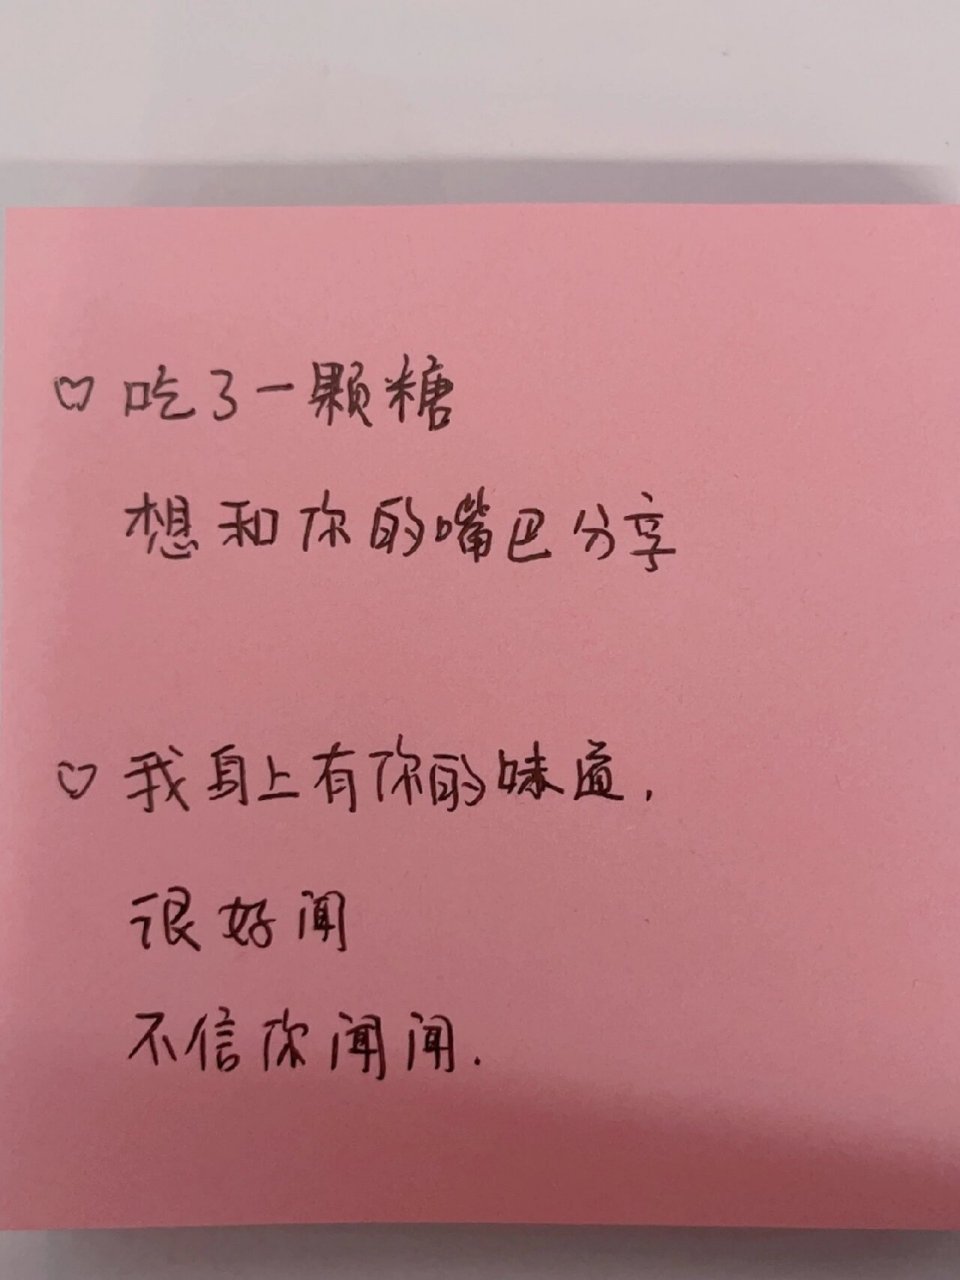 ♡ 吃了一颗糖
想和你的嘴巴分享
♡ 我身上有你的味道.
很好闻
不信你闻闻.